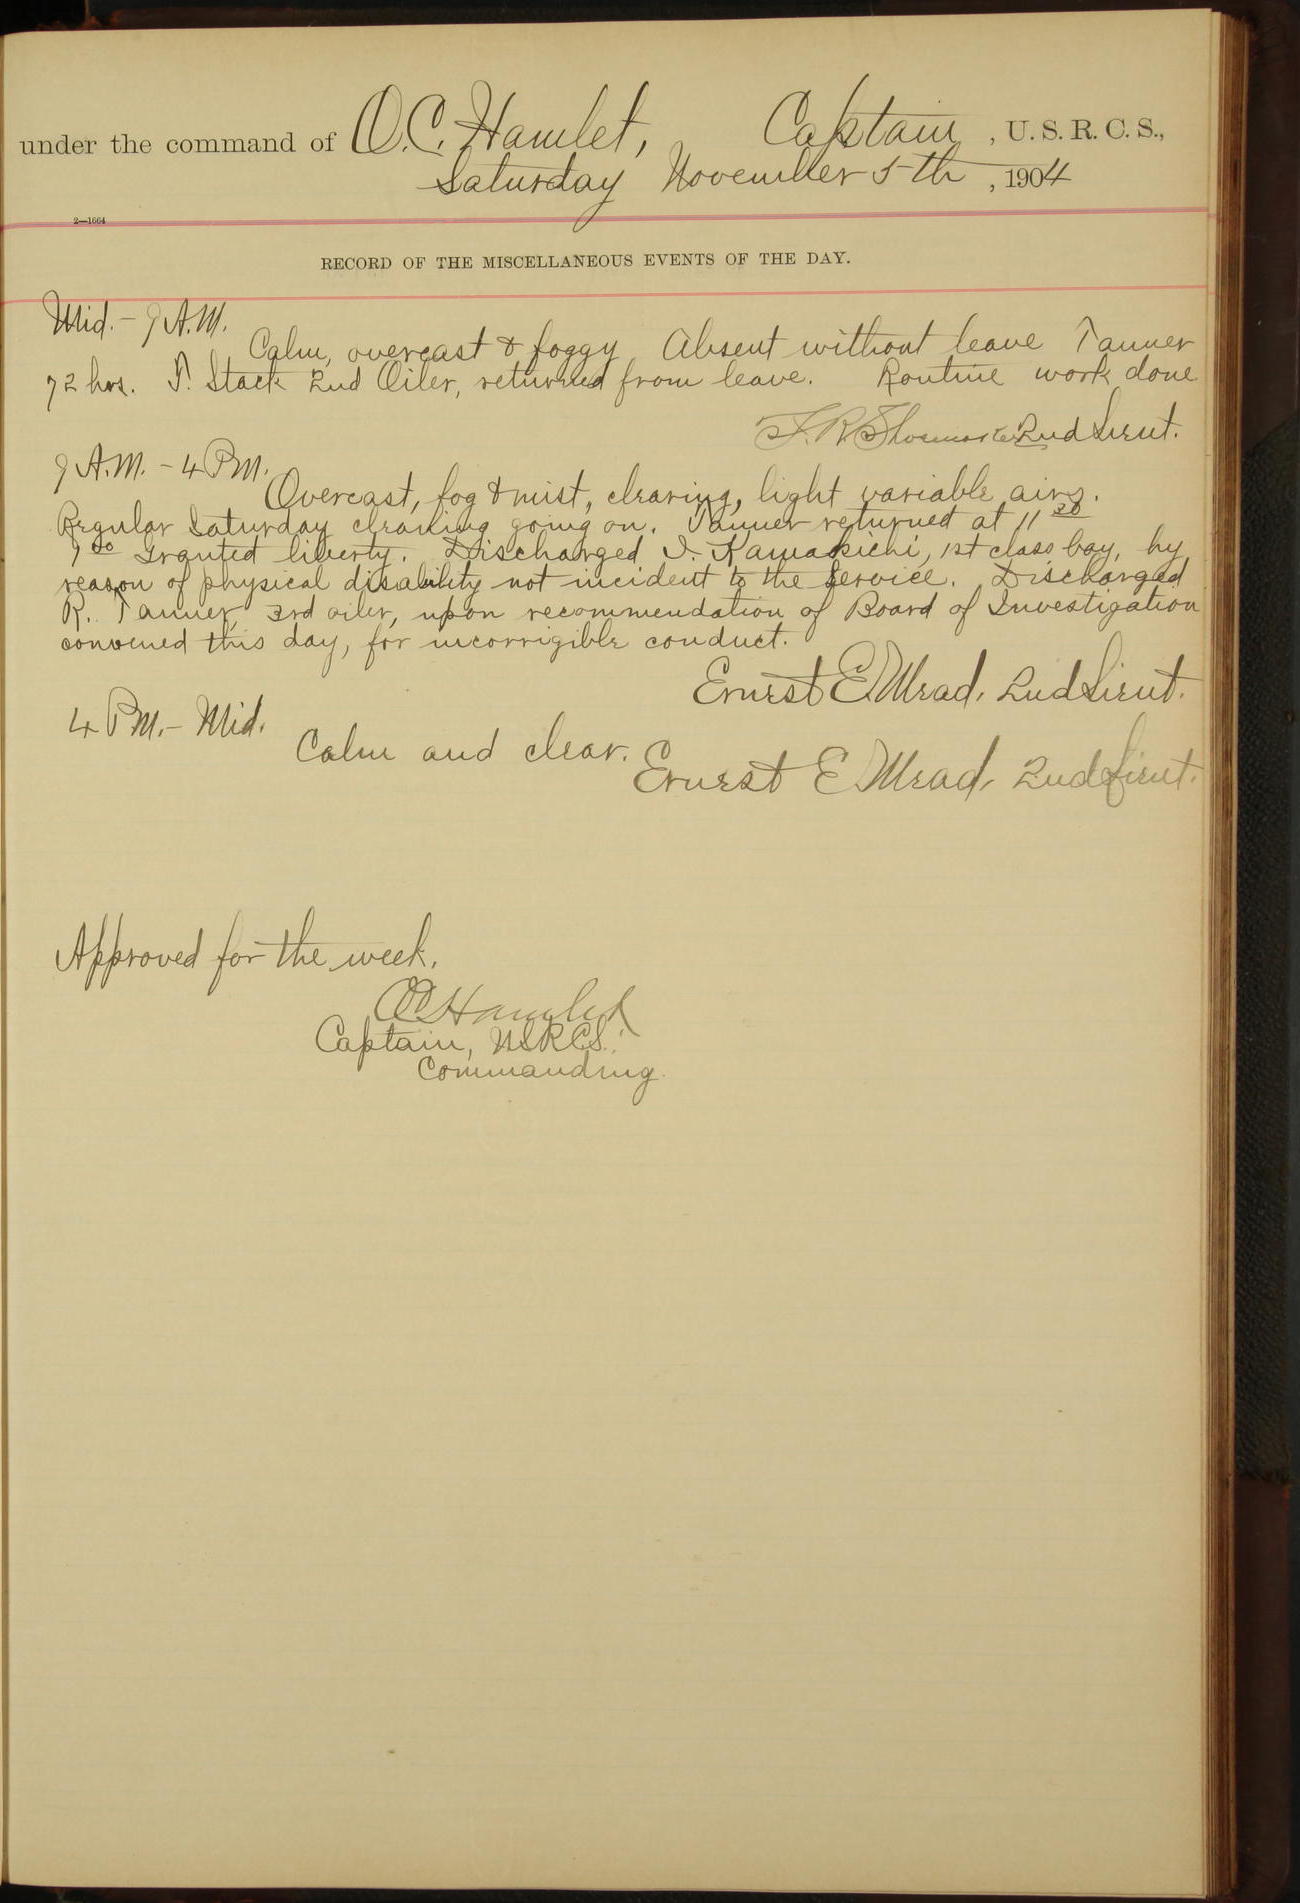 under the command of O.C. Hamlet, Captain, U. S. R. C. S.,
Saturday November 5th, 1904
2—1664
RECORD OF THE MISCELLANEOUS EVENTS OF THE DAY.
Mid. - 9 A.M.
Calm, overcast & foggy Absent without leave Tanner
72 hrs. T. Stack 2nd Oiler, returned from leave. Routine work done
F. R. Shoemaker 2nd Lieut.
9 A.M. - 4 P.M.
Overcast, fog & mist, clearing, light variable airs.
Regular Saturday cleaning going on. Tanner returned at 11 30
Granted liberty. Discharged I. Kamakichi, 1st class boy, by
reason of physical disability not incident to the Service. Discharged
R. Tanner, 3rd oiler, upon recommendation of Board of Investigation
convened this day, for incorrigible conduct.
Ernest E. Mead, 2nd Lieut.
4 P.M. - Mid.
Calm and clear.
Ernest E. Mead, 2nd Lieut.
Approved for the week.
O C Hamlet
Captain, USRCS.
Commanding.